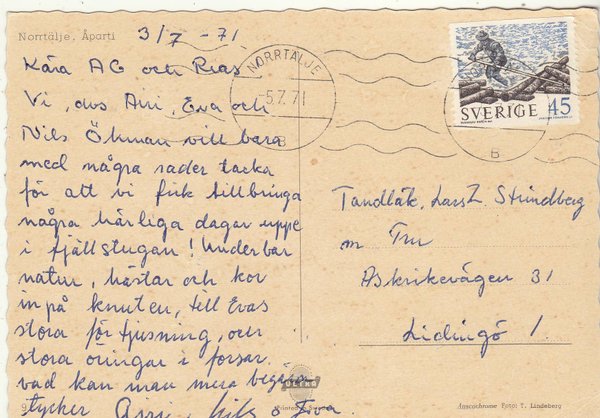 Norrtälje. Åparti
3/7 - 71
Kära AG och Reas
Vi, dvs Airi, Eva och
Nils Öhman vill bara
med några rader tacka
för att vi fick tillbringa
några härliga dagar uppe
i fjällstugan! Underbar
natur, hästar och kor
in på knuten, till Evas
stora förtjusning, och
stora öringar i forsar.
vad kan man mera begära
tycker Airi, Nils o Eva
NORRTÄLJE
-5.7.71
B
SVERIGE 45
B
Tandläk. Lars Z. Strindberg
m Fru
Askrikevägen 31
Lidingö 1
ULTRA
Printed in Sweden
Anscochrome Foto: T. Lindeberg